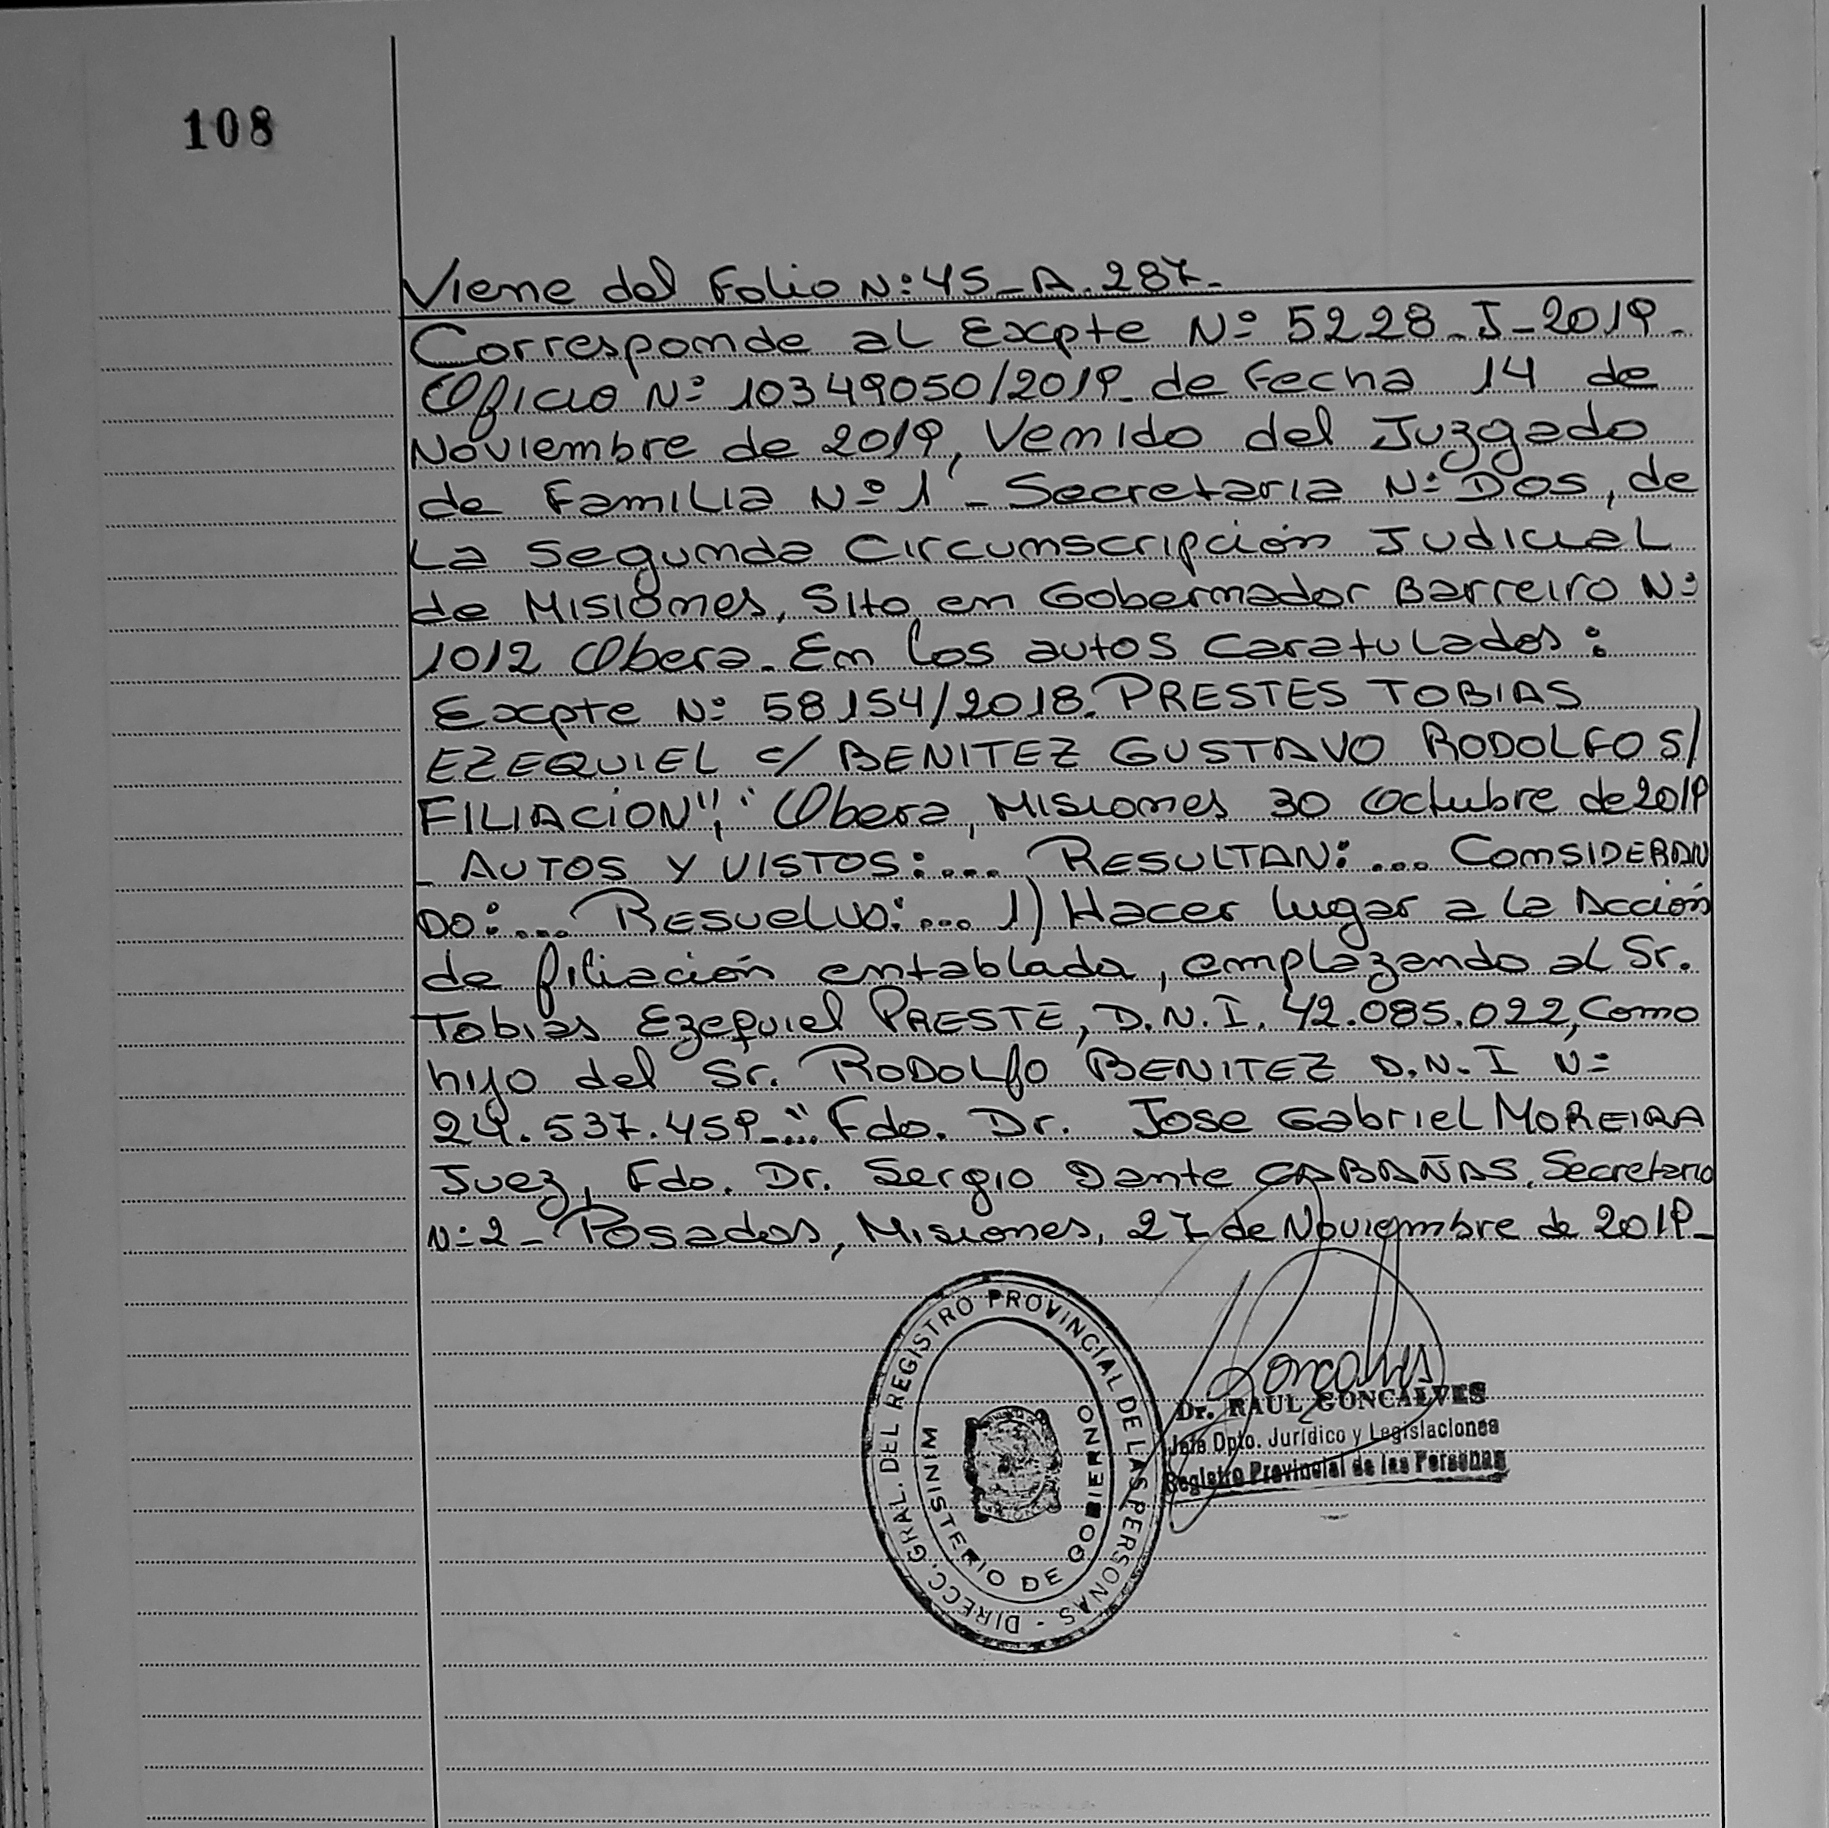 108
Viene del Folio N:45-A.287-
Corresponde al Excpte Nº 5228-J-2019-
Oficio Nº 10349050/2019- de Fecha 14 de
Noviembre de 2019, Venido del Juzgado
de Familia Nº1 - Secretaria Nº Dos, de
La Segunda Circunscripción Judicial
de Misiones, Sito en Gobernador Barreiro Nº
1012 Obera. En los autos Caratulados:
Excpte Nº 58154/2018. PRESTES TOBIAS
EZEQUIEL c/ BENITEZ GUSTAVO RODOLFO S/
FILIACION", "Obera, Misiones 30 Octubre de 2019
- AUTOS Y VISTOS:... RESULTAN:... CONSIDERAN
DO:... RESUELVO:... 1) Hacer lugar a la Acción
de filiación entablada, emplazando al Sr.
Tobias Ezequiel PRESTE, D.N.I. 42.085.022, Como
hijo del Sr. RODOLfo BENITEZ D.N.I Nº
24.537.459-"... Fdo. Dr. Jose Gabriel MOREIRA
Juez, Fdo. Dr. Sergio Dante CABAÑAS, Secretario
Nº2- Posadas, Misiones, 27 de Noviembre de 2019-
DIRECC. GRAL. DEL REGISTRO PROVINCIAL DE LAS PERSONAS -
MINISTERIO DE GOBIERNO
Goncalves
Dr. RAUL GONCALVES
Jefe Dpto. Jurídico y Legislaciones
Registro Provincial de las Personas